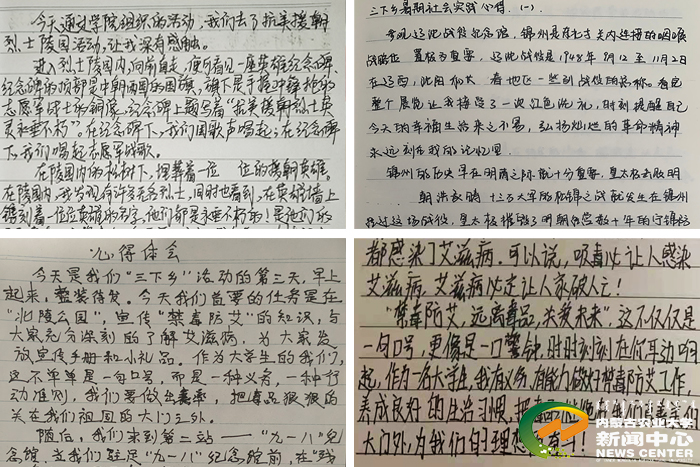 今天通过学院组织的活动，我们去了抗美援朝
烈士陵园活动，让我深有感触。
进入烈士陵园内，向前走，便可看见一座英雄纪念碑，
纪念碑的顶部是中朝两国的国旗，旗下是手握冲锋枪的
志愿军战士的铜像，纪念碑上题写着“抗美援朝烈士英
灵永垂不朽”。在纪念碑下，我们国歌声唱起，在纪念碑
下，我们唱起志愿军战歌。
在陵园内的松树下，埋葬着一位 位的援朝英雄。
在陵园内，我发现有许多无名烈士，同时也看到，在英雄墙上
镌刻着一位位英雄的名字，他们都是永垂不朽的！是他们的
三下乡暑期社会实践心得（一）
参观辽沈战役纪念馆，锦州是东北与关内连接的咽喉
战略位 置极为重要，辽沈战役是1948年9月12至11月2日
在辽西，沈阳
整个展览让我接受了一次红色洗礼，时刻提醒自己
今天的幸福生活来之不易，弘扬灿烂的革命精神
永远刻在我的记忆里
锦州的历史早在明清之际就十分重要，皇太极击败明
朝洪承畴 十三万大军的松锦之战就发生在锦州
经过这场战役，皇太极摧毁了明朝
心得体会
今天是我们“三下乡”活动的第三天，早上
起来，整装待发。今天我们首要的任务是在
“北陵公园”，宣传“禁毒防艾”的知识，与
大家充分深刻的了解艾滋病，为大家发
放宣传手册和小礼品。作为大学生的我们，
这不单单是一句口号，而是一种义务，一种行
动准则，我们要做 ，把毒品狠狠的
关在我们祖国的大门之外。
随后，我们来到第二站——“九一八”纪
念馆，当我们驻足“九一八”纪念馆前，在“残
都感染了艾滋病，可以说，吸毒必让人感染
艾滋病，艾滋病必定让人家破人亡！
“禁毒防艾，远离毒品，关爱未来”，这不仅仅是
一句口号，更像是一口警钟，时时刻刻在你耳边响
起，作为一名大学生，我有义务，有能力做好禁毒防艾工作
养成良好的生活习惯，把毒品
大门外，为我们的理想
内蒙古农业大学
新闻中心
NEWS CENTER